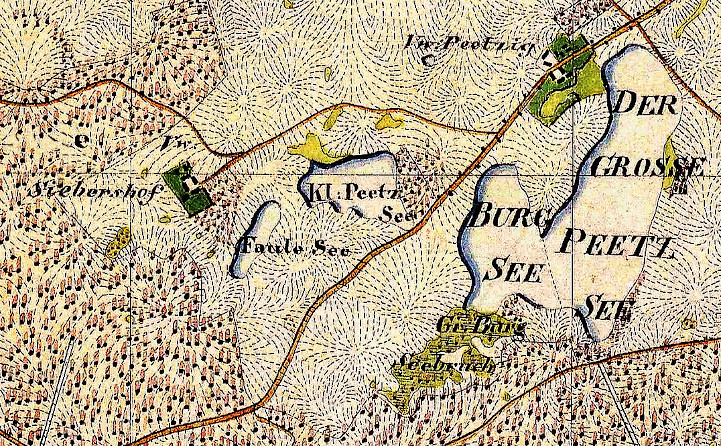 Vw. Peetzig
DER
GROSSE
PEETZ
SEE
Vw.
Siebershof
Kl. Peetz
See
Faule See
BURG
SEE
Gr. Burg
Seebruch
e
c